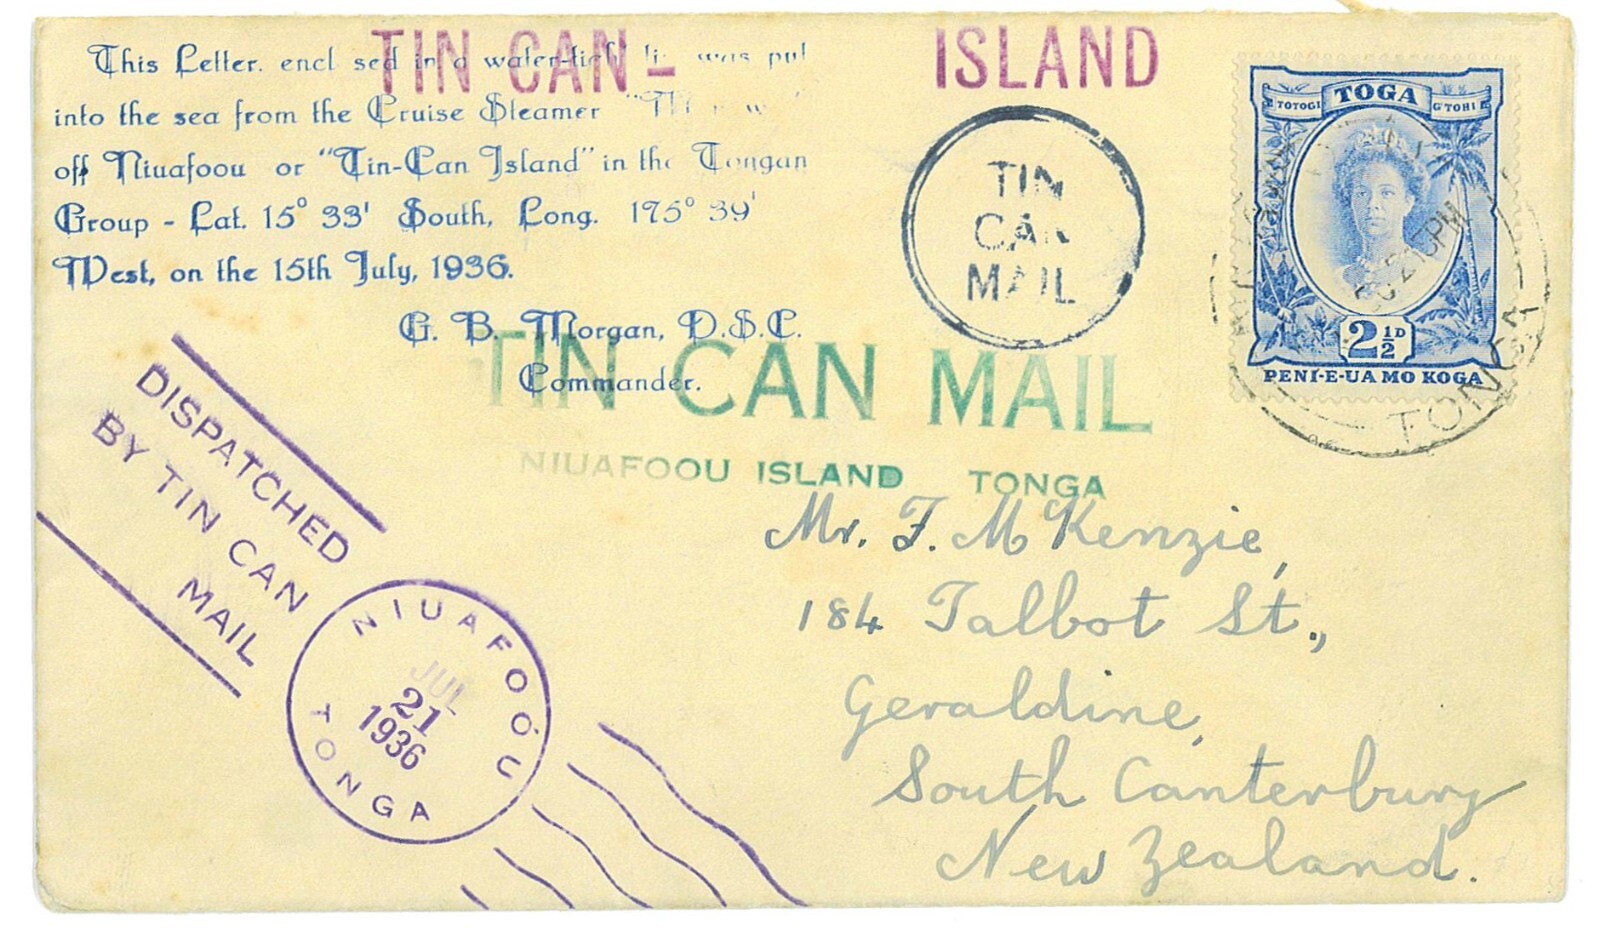 TIN CAN - ISLAND
This Letter. encl sed in a water-tight ti was put
into the sea from the Cruise Steamer
off Niuafoou or "Tin-Can Island" in the Tongan
Group - Lat. 15° 33' South, Long. 175° 39'
West, on the 15th July, 1936.
G. B. Morgan, D.S.C.
Commander.
TIN
CAN
MAIL
TOGA
TOTOGI
G'TOHI
2½D
PENI-E-UA MO KOGA
215PM
TONGA
TIN CAN MAIL
NIUAFOOU ISLAND TONGA
DISPATCHED
BY TIN CAN
MAIL
NIUAFOOU
JUL
21
1936
TONGA
Mr. F. McKenzie,
184 Talbot St.,
Geraldine,
South Canterbury
New Zealand.